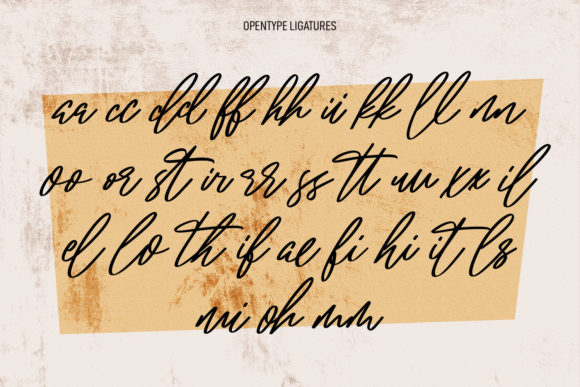 OPENTYPE LIGATURES
aa cc dd ff hh ii kk ll nn
oo or st ir rr ss tt uu xx il
el lo th if ae fi hi it ls
ni oh mm